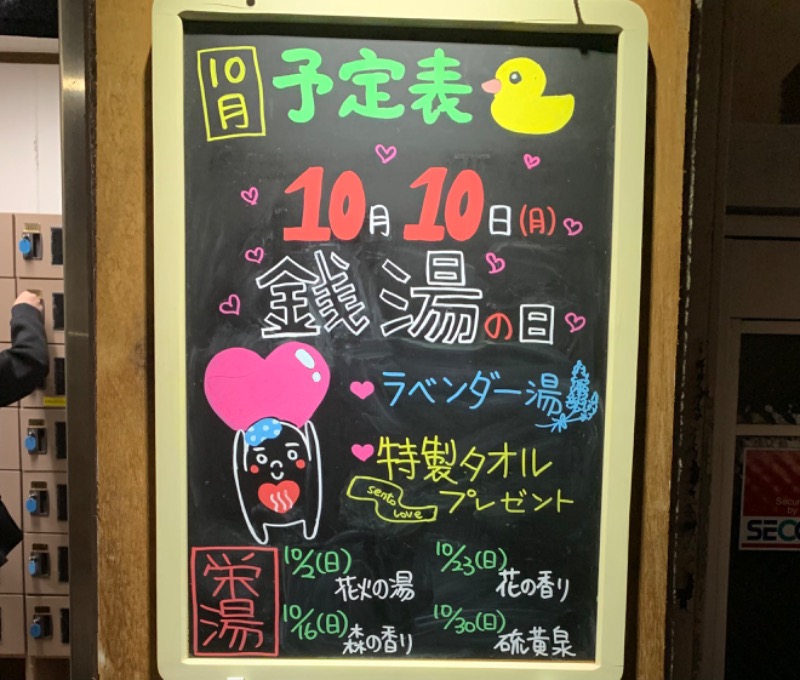 10月 予定表
10月10日(月)
銭湯の日
ラベンダー湯
特製タオル
sento love プレゼント
栄湯
10/2(日) 花火の湯
10/23(日) 花の香り
10/16(日) 森の香り
10/30(日) 硫黄泉
Secu
by
SECO